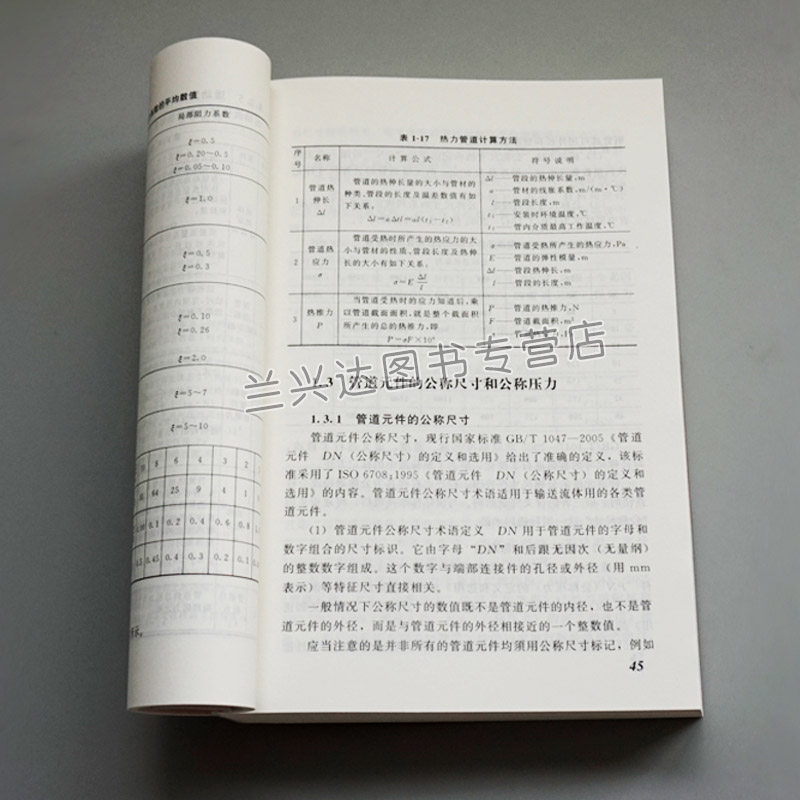 均数值
局部阻力系数
ξ=0.5
ξ=0.20~0.5
ξ=0.05~0.10
ξ=1.0
ξ=0.5
ξ=0.3
ξ=0.10
ξ=0.26
ξ=2.0
ξ=5~7
ξ=5~10
8 6 4 2 1
64 25 9 4 1
0.1 0.2 0.4 0.6 0.8
0.5 0.45 0.4 0.3 0.2 0.1
表 1-17 热力管道计算方法
序号 名称 计算公式 符号说明
1 管道热伸长 Δl
管道的热伸长量的大小与管材的
种类、管段的长度及温差数值有如
下关系。
Δl=αΔtl=αl(t₁-t₂)
Δl——管段的热伸长量,m
α——管材的线胀系数,m/(m·℃)
l——管段长度,m
——安装时环境温度,℃
——管内介质最高工作温度,℃
2 管道热应力 σ
管道受热时所产生的热应力的大
小与管材的性质、管段长度及热伸
长的大小有如下关系。
σ=E Δl/l
σ——管道受热所产生的热应力,Pa
E——管道的弹性模量,
Δl——管段热伸长,m
l——管段的长度,m
3 热推力 P
当管道受热时的应力知道后,乘
以管道截面面积,就是整个截面积
所产生的总的热推力,即
P=σF×10⁶
P——管道的热推力,N
F——管道截面积,m²
兰兴达图书专营店
1.3 管道元件的公称尺寸和公称压力
1.3.1 管道元件的公称尺寸
管道元件公称尺寸,现行国家标准 GB/T 1047—2005《管
道元件 DN(公称尺寸)的定义和选用》给出了准确的定义,该标
准采用了 ISO 6708:1995《管道元件 DN(公称尺寸)的定义和
选用》的内容。管道元件公称尺寸术语适用于输送流体用的各类管
道元件。
(1)管道元件公称尺寸术语定义 DN 用于管道元件的字母和
数字组合的尺寸标识。它由字母“DN”和后跟无因次(无量纲)
的整数数字组成。这个数字与端部连接件的孔径或外径(用 mm
表示)等特征尺寸直接相关。
一般情况下公称尺寸的数值既不是管道元件的内径,也不是管
道元件的外径,而是与管道元件的外径相接近的一个整数值。
应当注意的是并非所有的管道元件均须用公称尺寸标记,例如
45